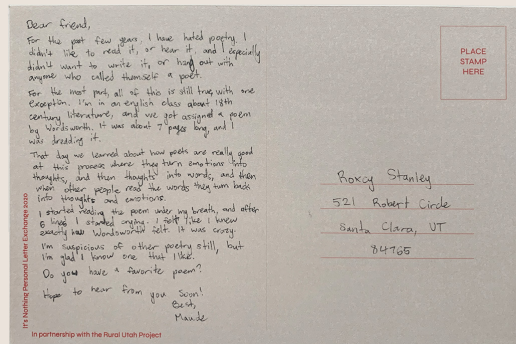 Dear friend,
For the past few years, I have hated poetry. I
didn't like to read it, or hear it, and I especially
didn't want to write it, or hang out with
anyone who called themself a poet.
For the most part, all of this is still true, with one
exception. I'm in an english class about 18th
century literature, and we got assigned a poem
by Wordsworth. It was about 7 pages long, and I
was dreading it.
That day we learned about how poets are really good
at this process where they turn emotions into
thoughts, and then thoughts into words, and then
when other people read the words they turn back
into thoughts and emotions.
I started reading the poem under my breath, and after
6 lines I started crying. I felt like I knew
exactly how Wordsworth felt. It was crazy.
I'm suspicious of other poetry still, but
I'm glad I know one that I like.
Do you have a favorite poem?
Hope to hear from you soon!
Best,
Maude
It's Nothing Personal Letter Exchange 2020
In partnership with the Rural Utah Project
PLACE
STAMP
HERE
Roxcy Stanley
521 Robert Circle
Santa Clara, UT
84765